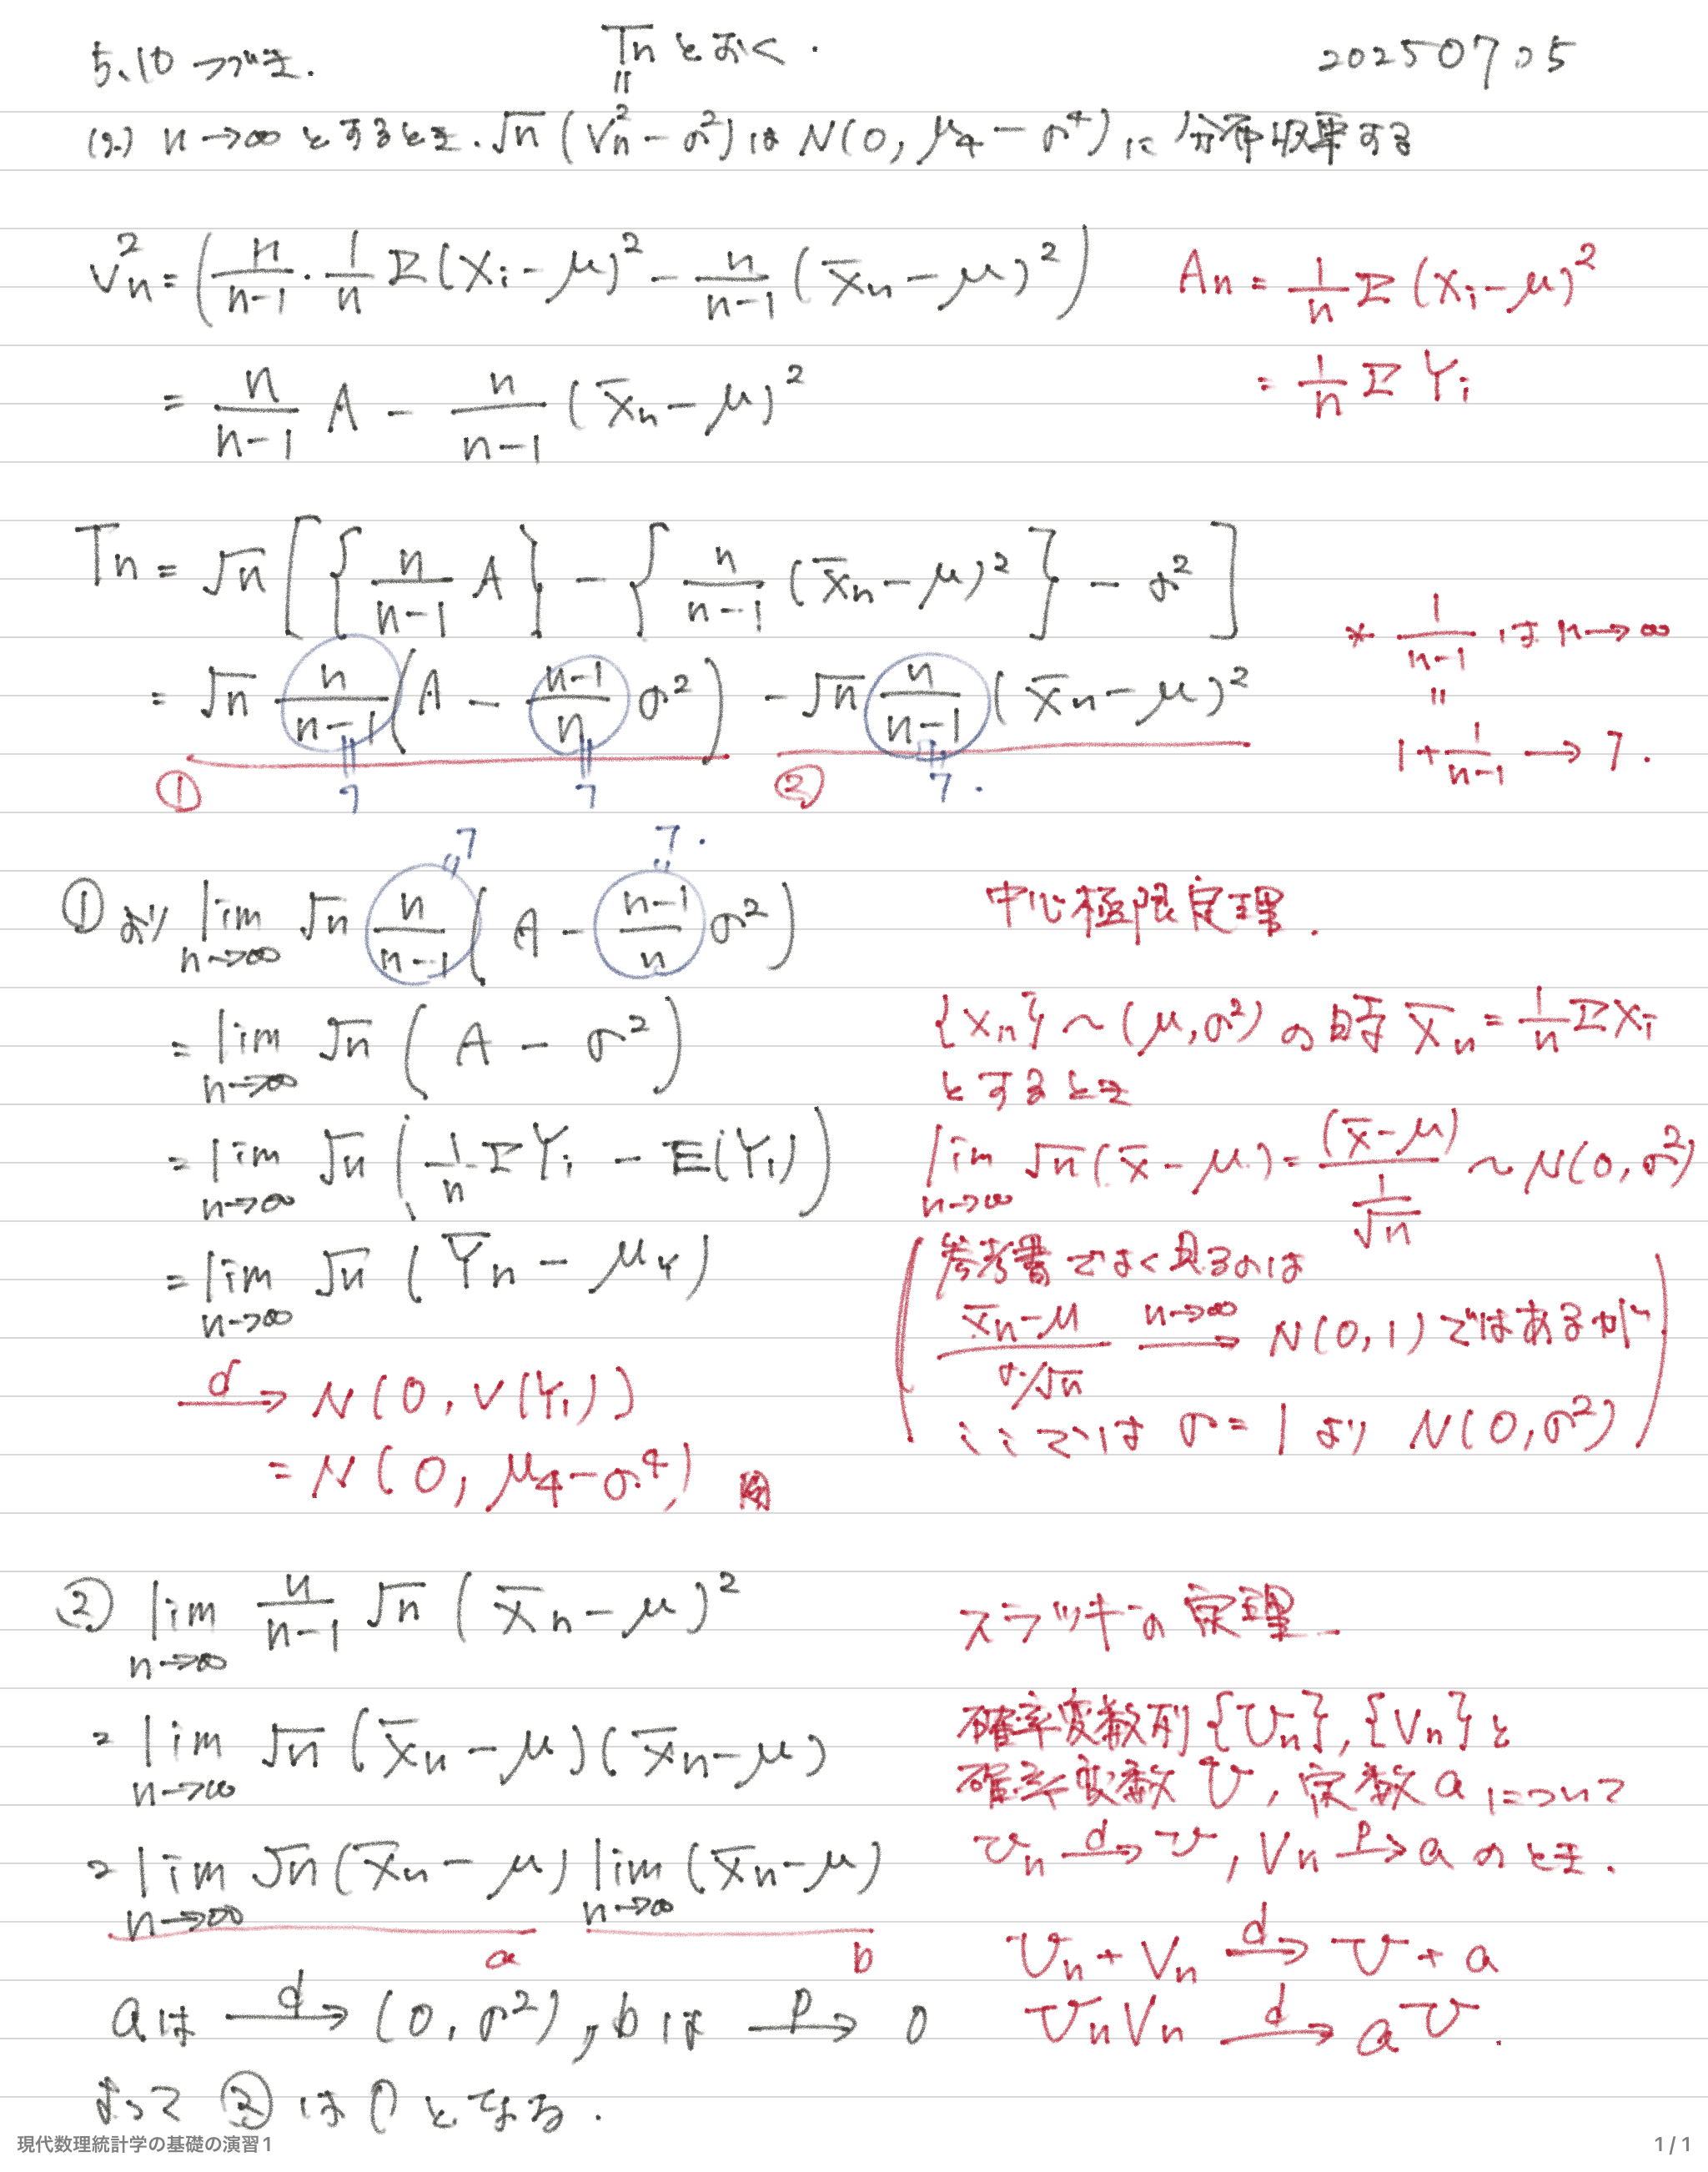 5.10 つづき.
Tn とおく.
20250705
(2) n→∞ とするとき. √n (Vn² − σ²) は N(0, μ4 − σ⁴) に分布収束する
Vn² = (n/(n−1) · 1/n Σ(Xi − μ)² − n/(n−1) (X̄n − μ)²)
An = 1/n Σ(Xi − μ)²
= n/(n−1) A − n/(n−1) (X̄n − μ)²
= 1/n Σ Yi
Tn = √n [{n/(n−1) A} − {n/(n−1) (X̄n − μ)²} − σ²]
= √n n/(n−1) (A − (n−1)/n σ²) − √n n/(n−1) (X̄n − μ)²
① 1 1 ② 1.
* 1/(n−1) は n→∞
=
1 + 1/(n−1) → 1.
1 1.
① より lim n→∞ √n n/(n−1) (A − (n−1)/n σ²)
= lim n→∞ √n (A − σ²)
= lim n→∞ √n (1/n ΣYi − E(Yi))
= lim n→∞ √n (Ȳn − μY)
d→ N(0, V(Yi))
= N(0, μ4 − σ⁴)
中心極限定理.
{Xn} ~ (μ, σ²) の時 X̄n = 1/n ΣXi
とするとき
lim n→∞ √n (X̄ − μ) = (X̄ − μ)/(1/√n) ~ N(0, σ²)
(参考書でよく見るのは
(X̄n − μ)/(σ/√n) n→∞→ N(0, 1) ではあるが
ここでは σ = 1 より N(0, σ²))
② lim n→∞ n/(n−1) √n (X̄n − μ)²
= lim n→∞ √n (X̄n − μ)(X̄n − μ)
= lim n→∞ √n (X̄n − μ) lim n→∞ (X̄n − μ)
a b
aは d→ (0, σ²), bは p→ 0
よって ② は 0 となる.
スラツキーの定理.
確率変数列 {Un}, {Vn} と
確率変数 U, 定数 a について
Un d→ U, Vn p→ a のとき.
Un + Vn d→ U + a
UnVn d→ aU.
現代数理統計学の基礎の演習1
1 / 1